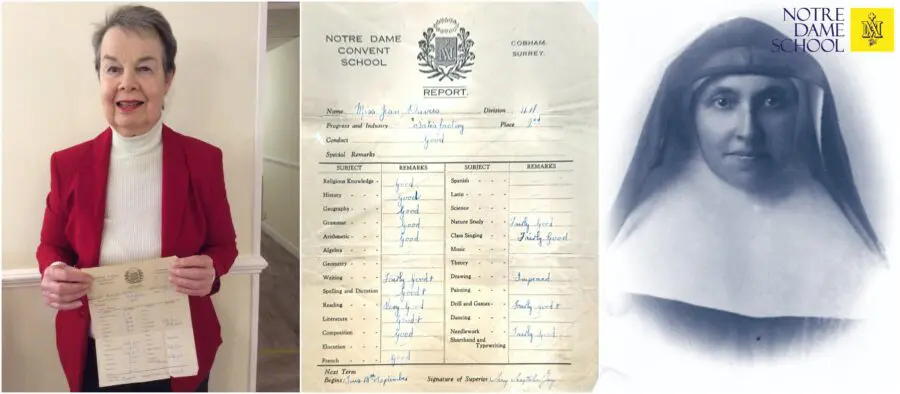 NOTRE DAME
CONVENT
SCHOOL
COBHAM,
SURREY.
REPORT.
Name Miss Jean Division
Progress and Industry Satisfactory Place 2nd
Conduct Good
Special Remarks
SUBJECT REMARKS SUBJECT REMARKS
Religious Knowledge - Good Spanish - - -
History - - - Good Latin - - -
Geography - - - Good Science - - -
Grammar - - - Good Nature Study - - Fairly Good
Arithmetic - - - Good Class Singing - - Fairly Good
Algebra - - - Music - - -
Geometry - - - Theory - - -
Writing - - - Fairly Good + Drawing - - - Improved
Spelling and Dictation Good + Painting - - -
Reading - - - Very Good Drill and Games - - Fairly good +
Literature - - - Good + Dancing - - -
Composition - - Good Needlework - - Fairly Good
Elocution - - - Shorthand and Typewriting
French - - - Good
Next Term
Begins: September Signature of Superior
NOTRE
DAME
SCHOOL